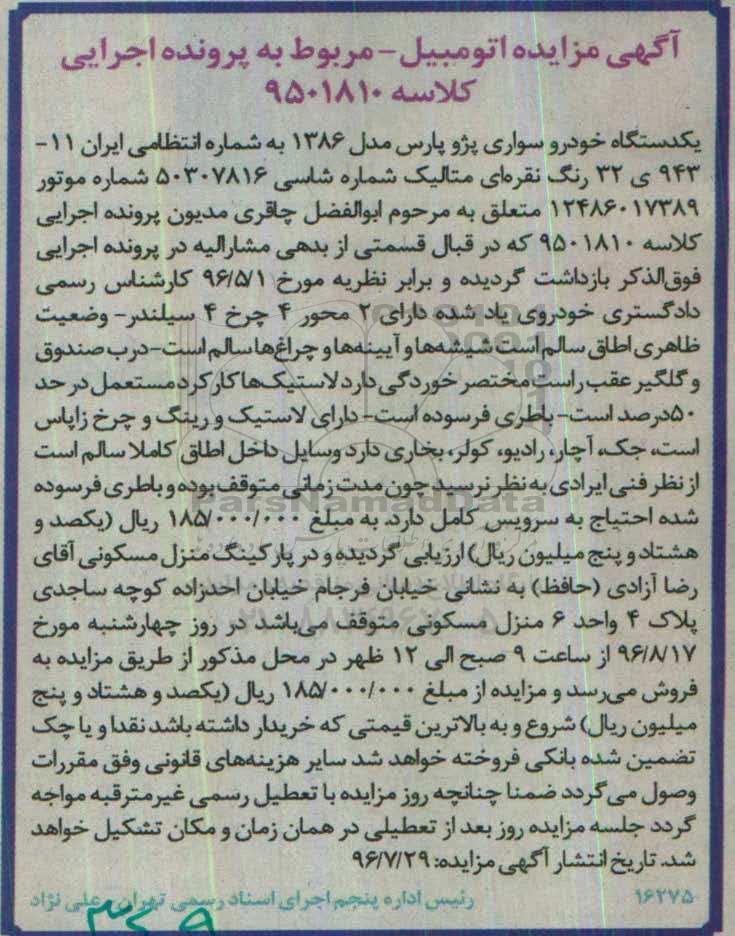 آگهی مزایده اتومبیل- مربوط به پرونده اجرایی
کلاسه ۹۵۰۱۸۱۰
یکدستگاه خودرو سواری پژو پارس مدل ۱۳۸۶ به شماره انتظامی ایران ۱۱-
۹۴۳ ی ۳۲ رنگ نقره‌ای متالیک شماره شاسی ۵۰۳۰۷۸۱۶ شماره موتور
۱۲۴۸۶۰۱۷۳۸۹ متعلق به مرحوم ابوالفضل چاقری مدیون پرونده اجرایی
کلاسه ۹۵۰۱۸۱۰ که در قبال قسمتی از بدهی مشارالیه در پرونده اجرایی
فوق‌الذکر بازداشت گردیده و برابر نظریه مورخ ۹۶/۵/۱ کارشناس رسمی
دادگستری خودروی یاد شده دارای ۲ محور ۴ چرخ ۴ سیلندر- وضعیت
ظاهری اطاق سالم است شیشه‌ها و آیینه‌ها و چراغ‌ها سالم است-درب صندوق
و گلگیر عقب راست مختصر خوردگی دارد لاستیک‌ها کارکرد مستعمل در حد
۵۰درصد است- باطری فرسوده است- دارای لاستیک و رینگ و چرخ زاپاس
است، جک، آچار، رادیو، کولر، بخاری دارد وسایل داخل اطاق کاملا سالم است
از نظر فنی ایرادی به نظر نرسید چون مدت زمانی متوقف بوده و باطری فرسوده
شده احتیاج به سرویس کامل دارد. به مبلغ ۱۸۵/۰۰۰/۰۰۰ ریال (یکصد و
هشتاد و پنج میلیون ریال) ارزیابی گردیده و در پارکینگ منزل مسکونی آقای
رضا آزادی (حافظ) به نشانی خیابان فرجام خیابان احدزاده کوچه ساجدی
پلاک ۴ واحد ۶ منزل مسکونی متوقف می‌باشد در روز چهارشنبه مورخ
۹۶/۸/۱۷ از ساعت ۹ صبح الی ۱۲ ظهر در محل مذکور از طریق مزایده به
فروش می‌رسد و مزایده از مبلغ ۱۸۵/۰۰۰/۰۰۰ ریال (یکصد و هشتاد و پنج
میلیون ریال) شروع و به بالاترین قیمتی که خریدار داشته باشد نقدا و یا چک
تضمین شده بانکی فروخته خواهد شد سایر هزینه‌های قانونی وفق مقررات
وصول می‌گردد ضمنا چنانچه روز مزایده با تعطیل رسمی غیرمترقبه مواجه
گردد جلسه مزایده روز بعد از تعطیلی در همان زمان و مکان تشکیل خواهد
شد. تاریخ انتشار آگهی مزایده: ۹۶/۷/۲۹
۱۶۲۷۵ رئیس اداره پنجم اجرای اسناد رسمی تهران - علی نژاد
ParsNamadData